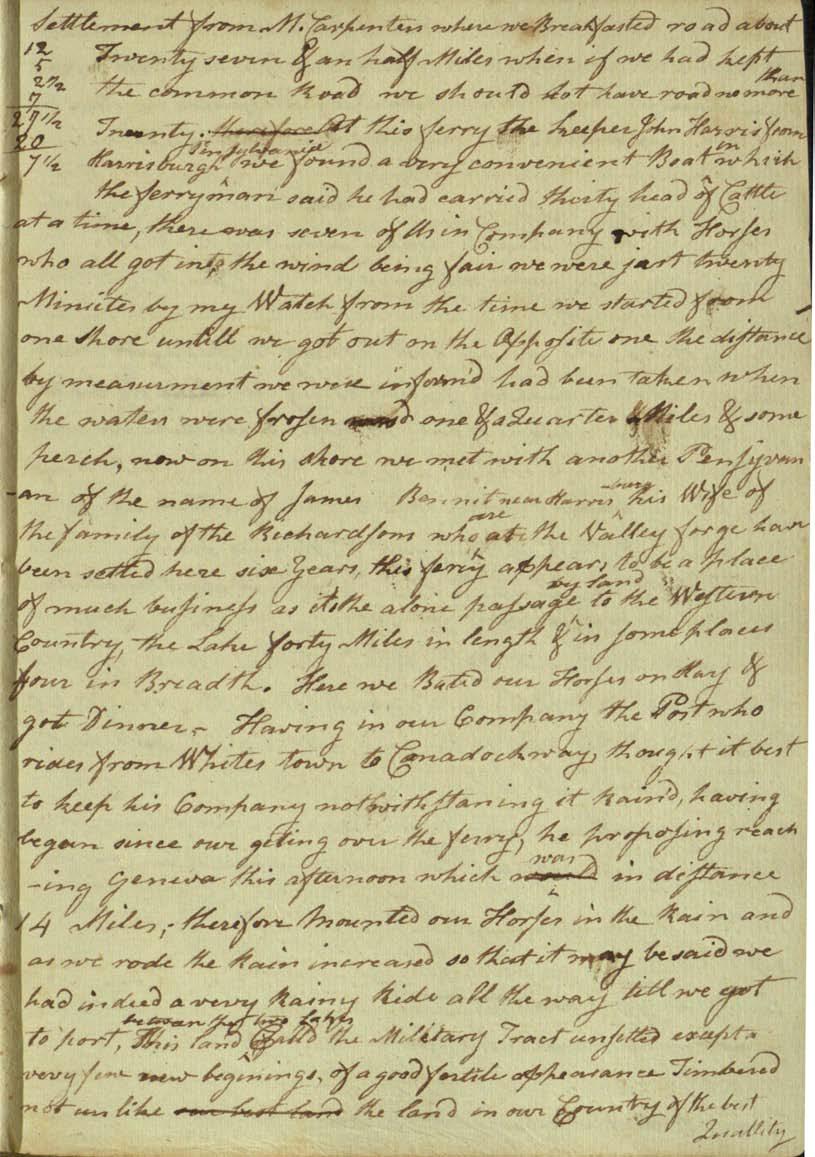 Settlement from M. Carpenters where we Breakfasted road about
12 Twenty seven & an half Miles when if we had kept
5
2 1/2 the common Road we should not have road no more than
7
27 1/2 Twenty. therefore At this ferry the keeper John Harris from
20
7 1/2 Harrisburgh Pensylvania we found a very convenient Boat in which
the ferryman said he had carried thirty head of Cattle
at a time, there was seven of Us in Company with Horses
who all got in, the wind being fair we were just twenty
Minietes by my Watch from the time we started from
one shore untill we got out on the Opposite one the distance
by measurment we were inform'd had been taken when
the waters were frosen one & a Quarter Miles & some
perch, now on this shore we met with another Pensyvan
-an of the name of James Bennit near Harris-burg his Wife of
the family of the Richardsons who are at the Valley forge have
been setled here six Years, this ferry appears to be a place
of much business as its the alone passage by land to the Western
Country, the Lake forty Miles in length & in some places
four in Breadth. Here we Bated our Horses on Hay &
got Dinner - Having in our Company the Post who
rides from Whites town to Canadockway, thought it best
to keep his Company nothwithstaning it Rain'd, having
began since our geting over the ferry, he proposing reach
-ing Geneva this afternoon which would was in distance
14 Miles; therefore Mounted our Horses in the Rain and
as we rode the Rain increased so that it may be said we
had indeed a very Rainy Ride all the way till we got
to port, This land between the two Lakes Calld the Military Tract unsetled except a
very few new beginings, of a good fertile appearance Timbered
not unlike our best land the land in our Country of the best
Quallity